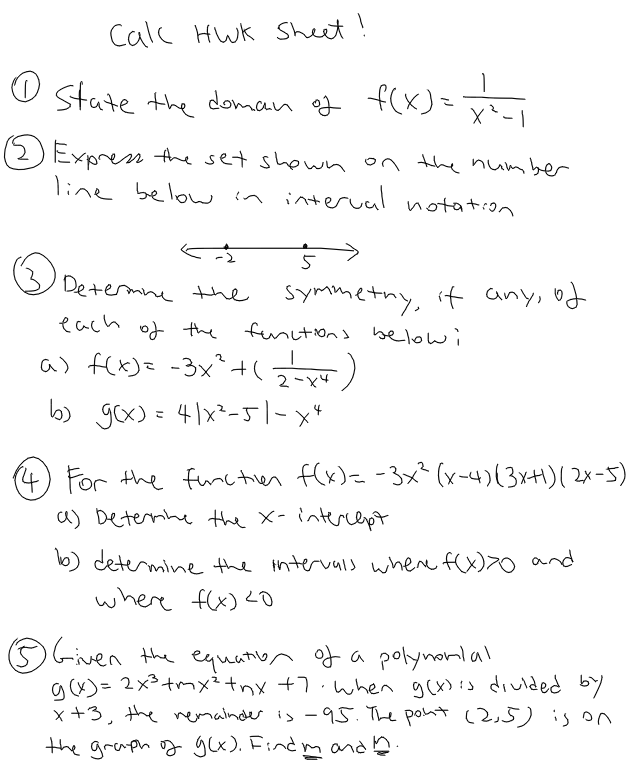 Calc HWK Sheet!
① State the doman of f(x) = 1/(x²-1)
② Express the set shown on the number
line below in interval notation
-2 5
③ Determine the symmetry, if any, of
each of the functions below:
a) f(x) = -3x² + (1/(2-x⁴))
b) g(x) = 4|x²-5| - x⁴
④ For the function f(x) = -3x² (x-4)(3x+1)(2x-5)
a) Determine the x-intercept
b) determine the intervals where f(x)>0 and
where f(x)<0
⑤ Given the equation of a polynomial
g(x) = 2x³+mx²+nx+7. When g(x) is divided by
x+3, the remainder is -95. The point (2,5) is on
the graph of g(x). Find m and n.